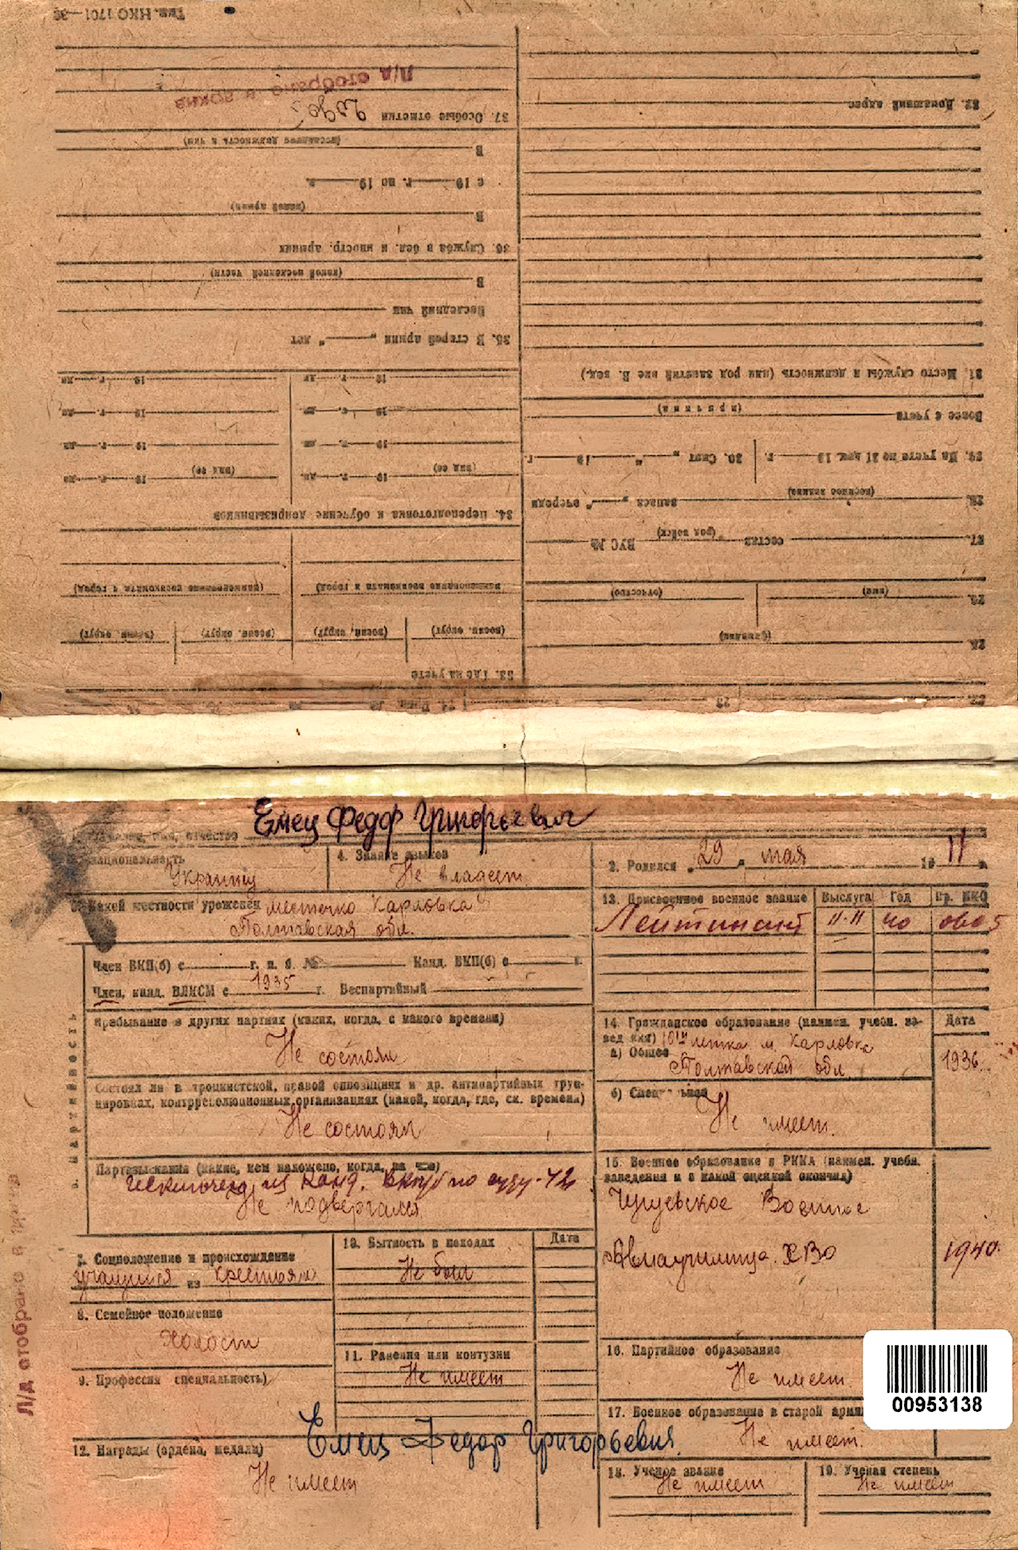 Тип. НКО 1701—39
Л/д отобрано в архив
37. Особые отметки
(последняя должность и чин)
В
с 19 г. по 19 г.
(какой армии)
В
36. Служба в бел. и иностр. армиях
(какой последней части)
В
Последний чин
35. В старой армии „ “ лет
34. Переподготовка и обучение допризывников
(наименование военкомата и город) (наименование военкомата и город)
(военн. округ) (военн. округ) (военн. округ) (военн. округ)
33. Где на учете
32. Домашний адрес
31. Место службы и должность (или род занятий вне В. вед.)
(причина)
Вовсе с учета
29. На учете по 31 дек. 19 г. 30. Снят „ “ 19 г.
28. (военное звание) запаса „ “ очереди
27. состав (род войск) ВУС №
26. (имя) (отчество)
25. (фамилия)
Емец Федор Григорьевич
имя, отчество
Национальность Украинец
4. Знание языков Не владеет
2. Родился „29“ мая 19 г.
какой местности уроженец местечко Карловка
Полтавская обл.
13. Присвоенное военное звание Выслуга Год Пр. НКО
Лейтенант 11-11 40
Член ВКП(б) с г. п. б. № Канд. ВКП(б) с г.
Член, канд. ВЛКСМ с 1935 г. Беспартийный
Партийность
Пребывание в других партиях (каких, когда, с какого времени)
Не состоял
Состоял ли в троцкистской, правой оппозициях и др. антипартийных группировках, контрреволюционных организациях (какой, когда, где, ск. времени)
Не состоял
Партвзыскания (какие, кем наложено, когда, за что)
исключен из канд. ВКП/б по суду-42
Не подвергался
14. Гражданское образование (наимен. учебн. заведения) Дата
а) Общее 10ти летка м. Карловка
Полтавской обл. 1936
б) Специальное
Не имеет.
15. Военное образование в РККА (наимен. учебн. заведения и с какой оценкой окончил)
Чугуевское Военное
Авиаучилище ХВО 1940.
7. Соцположение и происхождение
учащийся из крестьян
8. Семейное положение
Холост
9. Профессия (специальность)
10. Бытность в походах Дата
Не был
11. Ранения или контузии
Не имеет
12. Награды (ордена, медали)
Не имеет
Емец Федор Григорьевич.
16. Партийное образование
Не имеет.
17. Военное образование в старой армии
Не имеет.
18. Ученое звание
Не имеет
19. Ученая степень
Не имеет
Л/д отобрано в архив
00953138